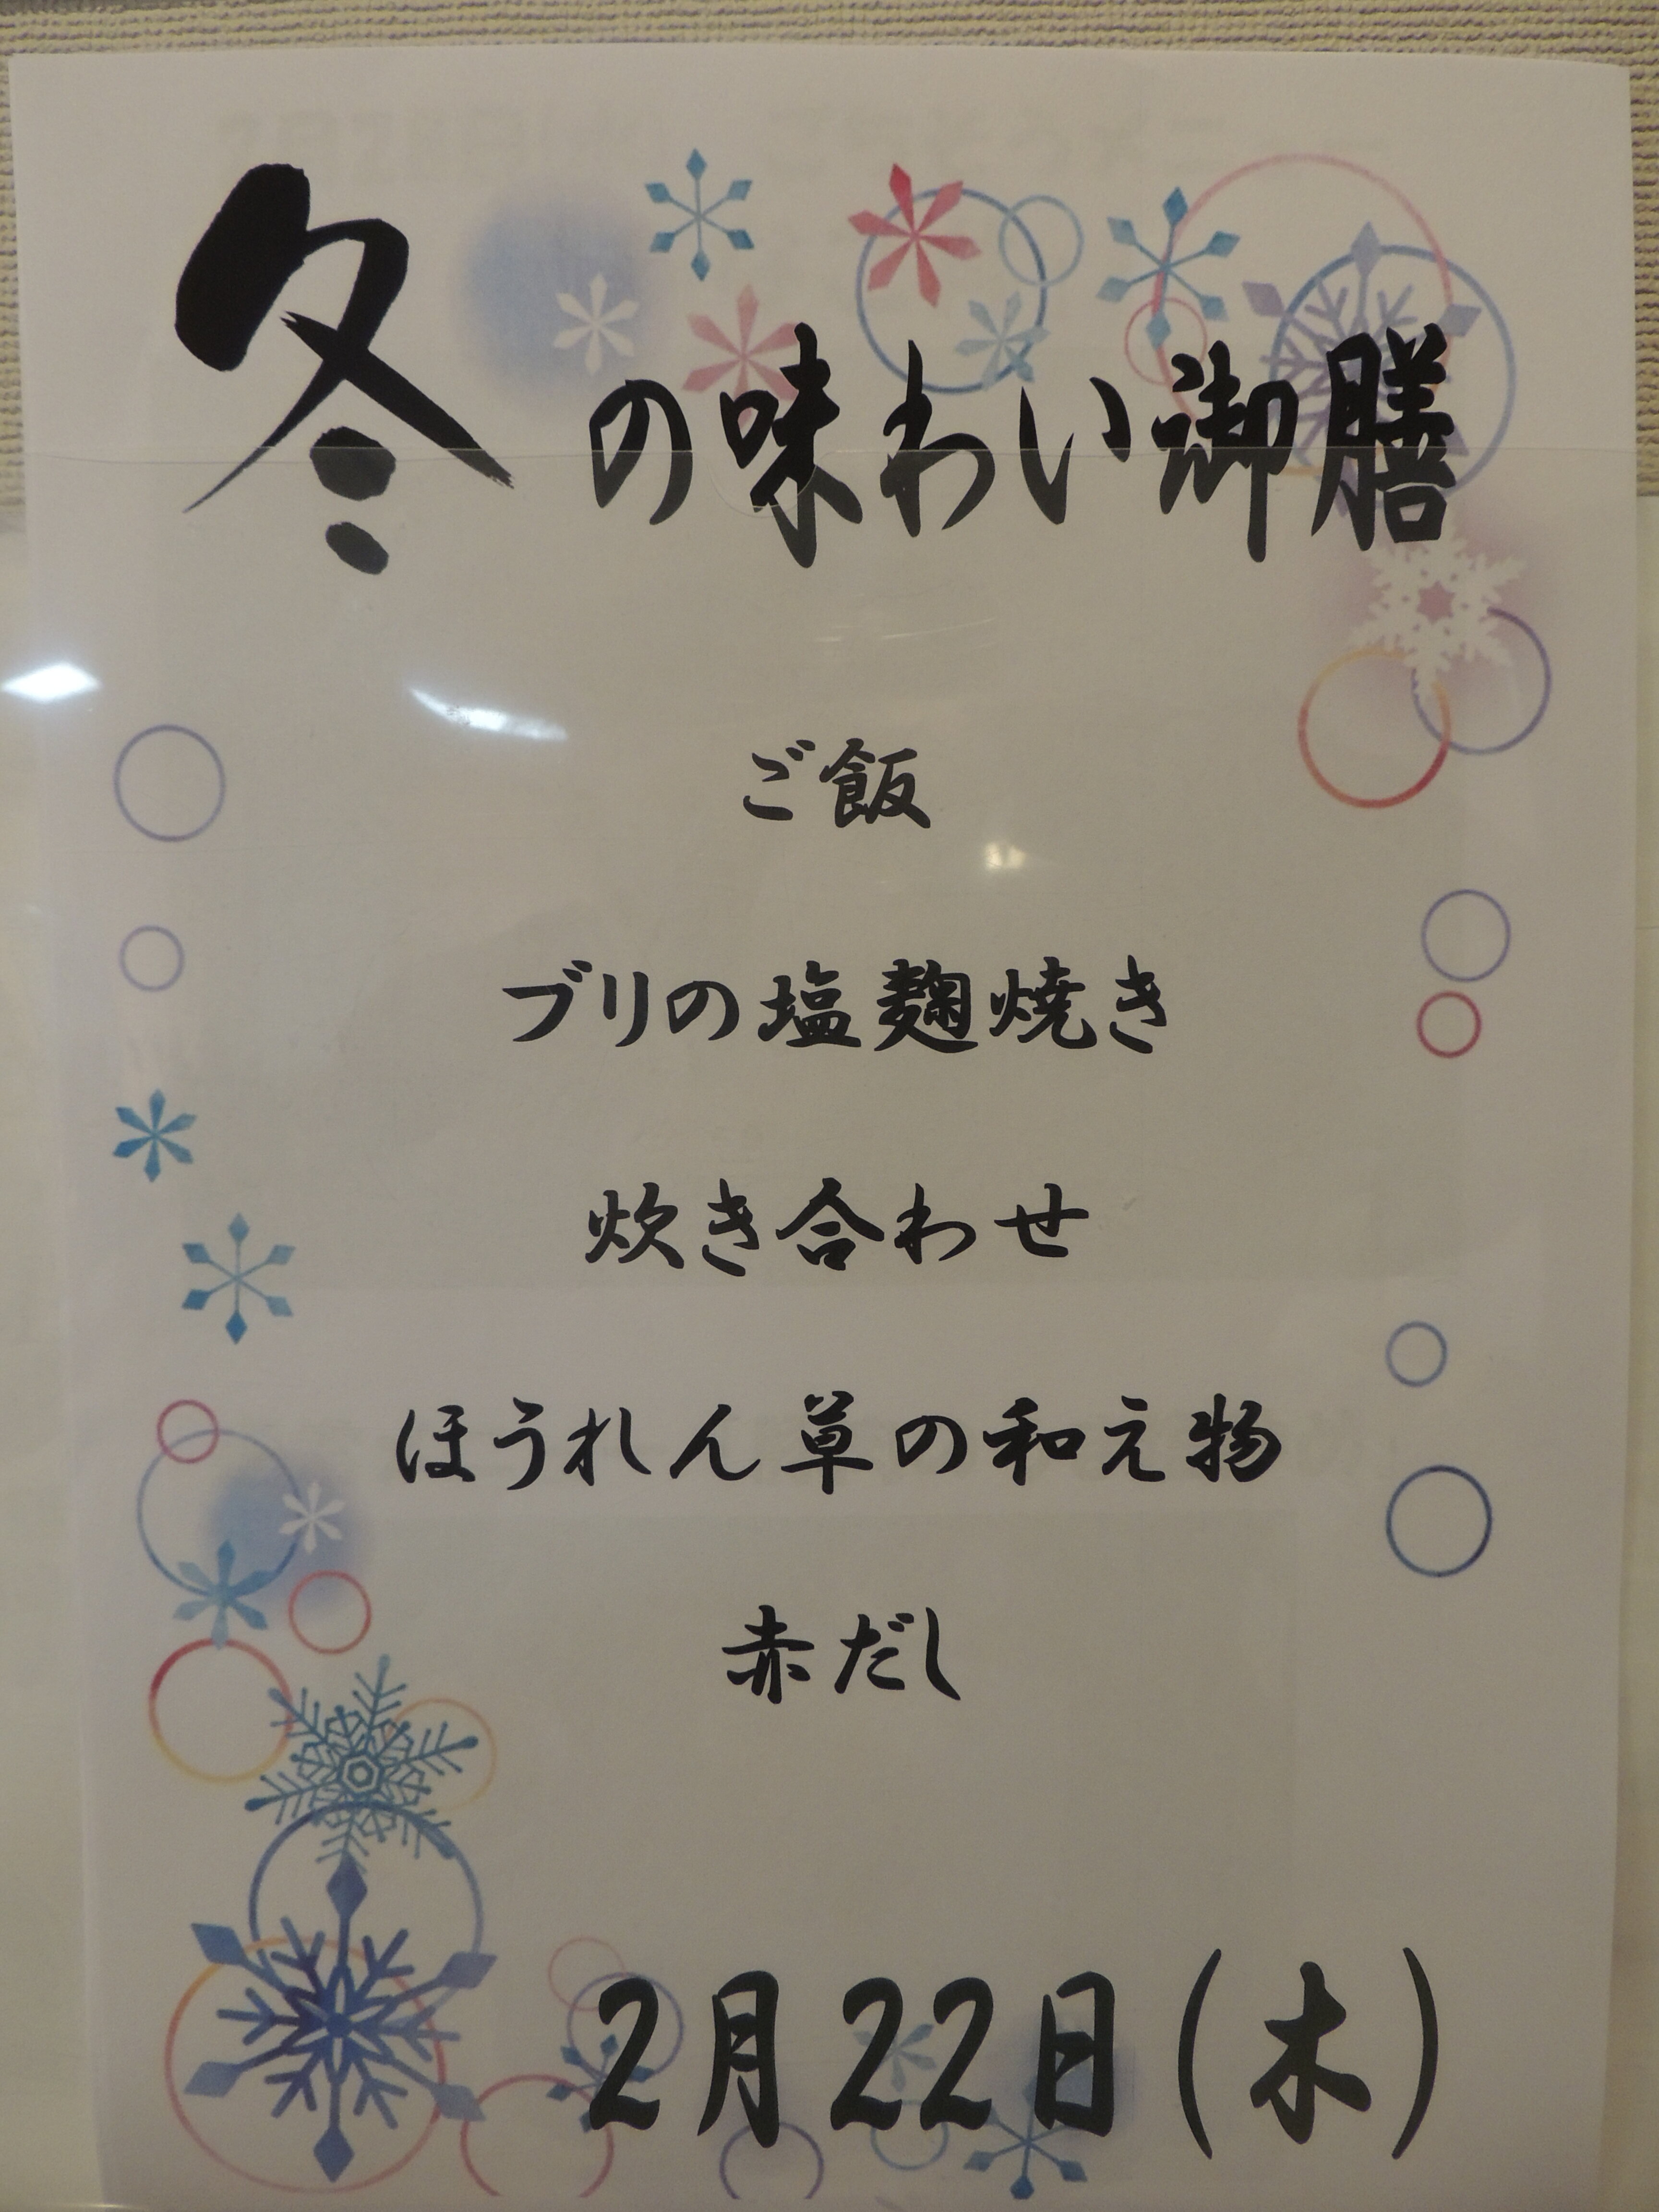 冬の味わい御膳
ご飯
ブリの塩麹焼き
炊き合わせ
ほうれん草の和え物
赤だし
2月22日(木)